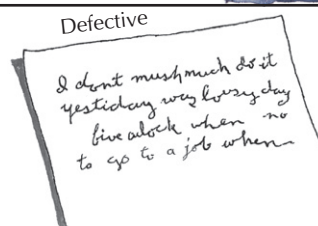 Defective
I dont mush much do it
yestiday way lousy day
five aclock when no
to go to a job when